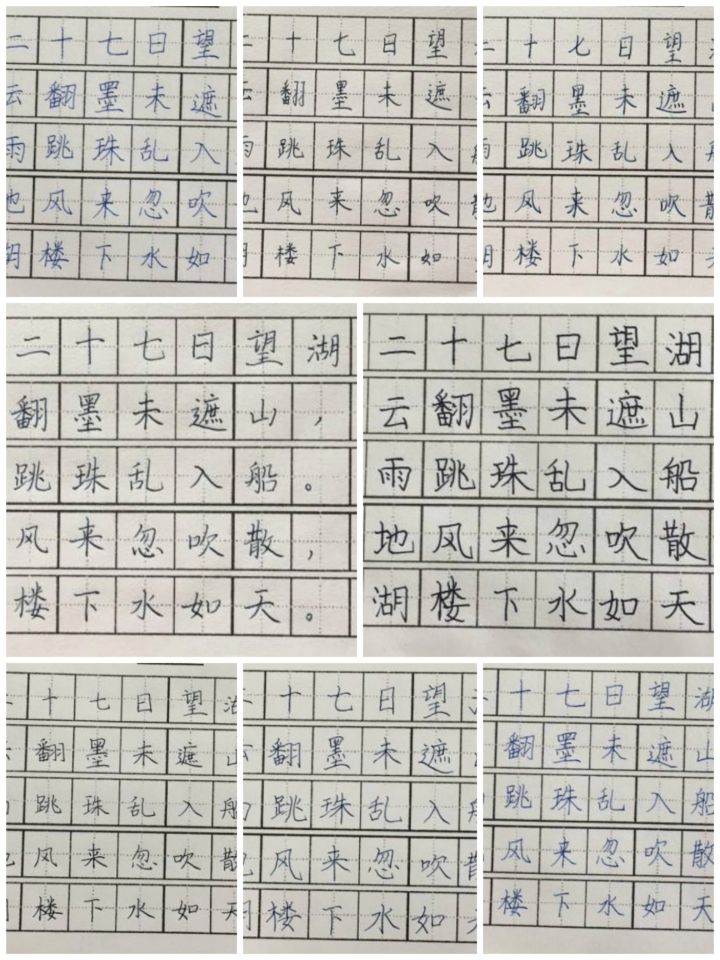 二十七日望
云翻墨未遮
雨跳珠乱入
风来忽吹
楼下水如
十七日望
翻墨未遮
跳珠乱入
风来忽吹
楼下水如
十七日望
翻墨未遮
跳珠乱入
风来忽吹散
楼下水如
二十七日望湖
翻墨未遮山，
跳珠乱入船。
风来忽吹散，
楼下水如天。
二十七日望湖
云翻墨未遮山
雨跳珠乱入船
地风来忽吹散
湖楼下水如天
十七日望
翻墨未遮山
跳珠乱入船
风来忽吹散
楼下水如天
十七日望
翻墨未遮
跳珠乱入
风来忽吹
楼下水如
十七日望湖
翻墨未遮山
跳珠乱入船
风来忽吹散
楼下水如天